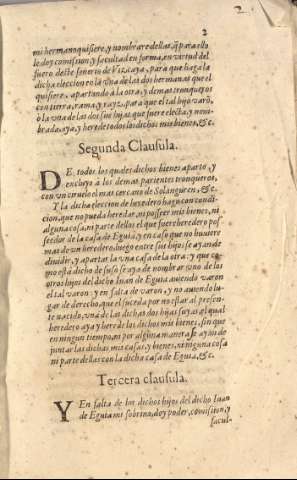 2
mi hermano quisiere, y nombrare dellas, q̃ para ello
le doy comision y facultad en forma, en virtud del
fuero deste señorio de Vizcaya, para que haga la
dicha eleccion en la vna de las dos hermanas que el
quisiere, apartando à la otra, y demas tronqueros
con tierra, rama, y rayz, para que el tal hijo varõ,
ò la vna de las dos sus hijas que fuere electa, y nom-
brada, aya, y herede todos los dichos mis bienes, &c.
Segunda Clausula.
DE todos los quales dichos bienes aparto, y
excluyo à los demas parientes tronqueros,
con vn ciruelo el mas cercano de Solanguren, &c.
Y la dicha eleccion de heredero hago con condi-
cion, que no pueda heredar, ni posseer mis bienes, ni
alguna cosa, ni parte dellos el que fuere heredero pos-
seedor de la casa de Eguia, y en caso que no huuiere
mas de vn heredero, luego entre sus hijos se ayan de
diuidir, y apartar la vna casa de la otra: y que co-
mo està dicho de suso se aya de nombrar vno de los
otros hijos del dicho Iuan de Eguia auiendo varon
el tal varon: y en falta de varon, y no auiendo lu-
gar de derecho que el suceda por no estar al presen-
te nacido, vna de las dichas dos hijas suyas al qual
heredero aya y herede los dichos mis bienes, sin que
en ningun tiempo, ni por alguna manera se ayan de
juntar las dichas mis casas, y bienes, ni ninguna cosa
ni parte dellas con la dicha casa de Eguia, &c.
Tercera clausula.
Y En falta de los dichos hijos del dicho Iuan
de Eguia mi sobrino, doy poder, comision, y
facul-